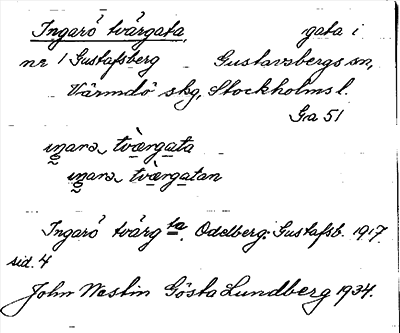 Ingarö tvärgata, gata i
nr 1 Gustafsberg Gustavsbergs sn,
Värmdö skg, Stockholms l.
Ga 51
tværgata
tværgatan
Ingarö tvärg ta. Odelberg: Gustafsb. 1917.
sid. 4
John Nestin Gösta Lundberg 1934.